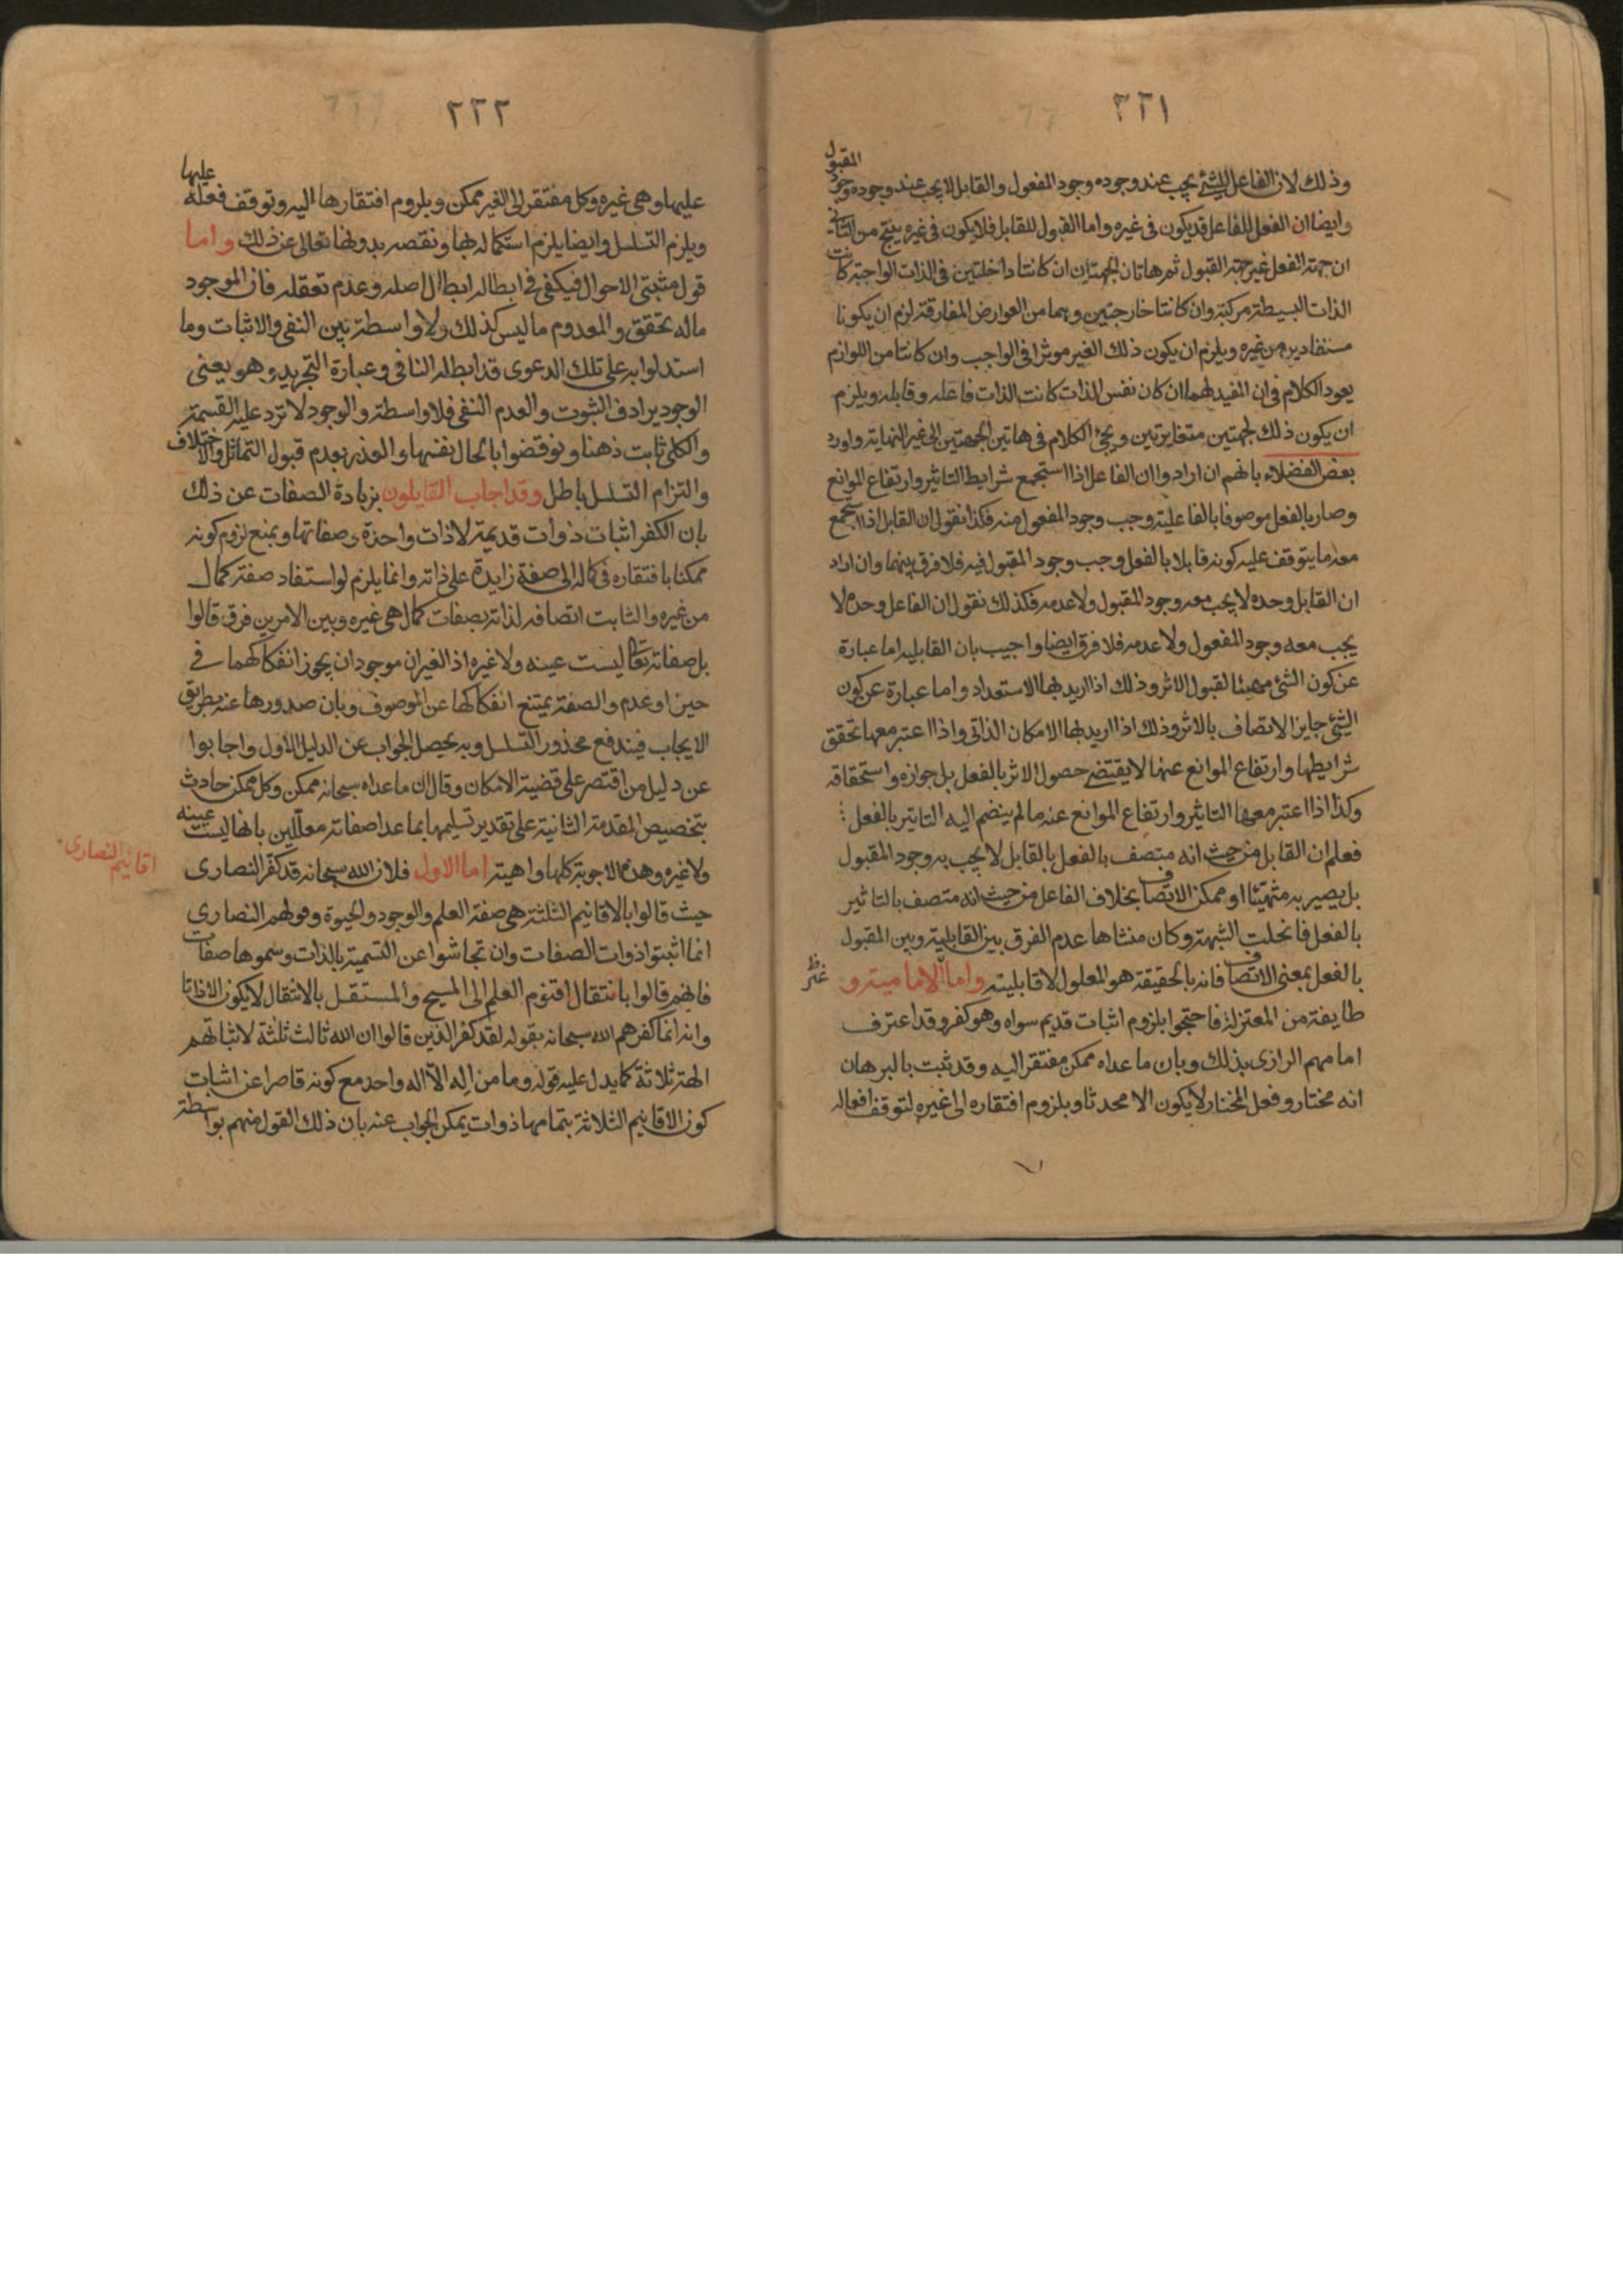 ٢٢١
وذلك لان الفاعل للشئ يجب عند وجوده وجود المفعول والقابل لا يجب عند وجوده وجود المقبول
وايضا ان الفعل للفاعل قد يكون فى غيره واما القبول للقابل فلا يكون فى غيره ينتج من الثانى
ان جهة الفعل غير جهة القبول ثم هاتان الجهتان ان كانتا داخلتين فى الذات الواجبة كانت
الذات البسيطة مركبة وان كانتا خارجتين وهما من العوارض المفارقة لزم ان يكونا
مستفادين من غيره ويلزم ان يكون ذلك الغير موثرا فى الواجب وان كانتا من اللوازم
يعود الكلام فى ان المفيد لهما ان كان نفس الذات كانت الذات فاعله وقابله ويلزم
ان يكون ذلك لجهتين متغايرتين ويجئ الكلام فى هاتين الجهتين الى غير النهاية واورد
بعض الفضلاء بانهم ان ارادوا ان الفاعل اذا استجمع شرايط التاثير وارتفاع الموانع
وصار بالفعل موصوفا بالفاعلية وجب وجود المفعول منه فكذا نقول ان القابل اذا استجمع
معه ما يتوقف عليه كونه قابلا بالفعل وجب وجود المقبول فيه فلا فرق بينهما وان اراد
ان القابل وحده لا يجب معه وجود المقبول ولا عدمه فكذلك نقول ان الفاعل وحده لا
يجب معه وجود المفعول ولا عدمه فلا فرق ايضا واجيب بان القابليه اما عبارة
عن كون الشئ مهيئا لقبول الاثر وذلك اذا اريد بها الاستعداد واما عبارة عن كون
الشئ جايز الاتصاف بالاثر وذلك اذا اريد بها الامكان الذاتى واذا اعتبر معها تحقق
شرايطها وارتفاع الموانع عنها لا يقتضى حصول الاثر بالفعل بل جوازه واستحقاقه
وكذا اذا اعتبر معها التاثير وارتفاع الموانع عنه ما لم ينضم اليه التاثير بالفعل
فعلم ان القابل من حيث انه متصف بالفعل بالقابل لا يجب به وجود المقبول
بل يصير به متهيئا او ممكن الاتصاف بخلاف الفاعل من حيث انه متصف بالتاثير
بالفعل فانحلت الشبهة وكان منشاها عدم الفرق بين القابلية وبين المقبول
بالفعل بمعنى الاتصاف فانه بالحقيقة هو المعلول لا قابليته واما الامامية و
طايفة من المعتزلة فاحتجوا بلزوم اثبات قديم سواه وهو كفر وقد اعترف
امامهم الرازى بذلك وبان ما عداه ممكن مفتقر اليه وقد ثبت بالبرهان
انه مختار وفعل المختار لا يكون الا محدثا وبلزوم افتقاره الى غيره لتوقف افعاله
٢٢٢
عليها وهى غيره وكل مفتقر الى الغير ممكن وبلزوم افتقارها اليه وتوقف فعله عليها
ويلزم التسلسل وايضا يلزم استكماله بها ونقصه بدونها تعالى عن ذلك واما
قول مثبتى الاحوال فيكفى فى ابطاله ابطال اصله وعدم تعقله فان الموجود
ماله تحقق والمعدوم ما ليس كذلك ولا واسطة بين النفى والاثبات وما
استدلوا به على تلك الدعوى قد ابطله النافى وعبارة التجريد وهو يعنى
الوجود يرادف الثبوت والعدم النفى فلا واسطة والوجود لا ترد عليه القسمة
والكلى ثابت ذهنا ونوقضوا بالحال نفسها والعذر بعدم قبول التماثل والاختلاف
والتزام التسلسل باطل وقد اجاب القايلون بزيادة الصفات عن ذلك
بان الكفر اثبات ذوات قديمة لا ذات واحدة وصفاتها وبمنع لزوم كونه
ممكنا بافتقاره فى كماله الى صفة زايدة على ذاته وانما يلزم لو استفاد صفة كمال
من غيره والثابت اتصافه لذاته بصفات كمال هى غيره وبين الامرين فرق قالوا
بل صفاته تعالى ليست عينه ولا غيره اذ الغيران موجودان يجوز انفكاكهما فى
حيز او عدم والصفة يمتنع انفكاكها عن الموصوف وبان صدورها عنه بطريق
الايجاب فيندفع محذور التسلسل وبه يحصل الجواب عن الدليل الاول واجابوا
عن دليل من اقتصر على قضية الامكان وقال ان ما عداه سبحانه ممكن وكل ممكن حادث
بتخصيص المقدمة الثانية على تقدير تسليمها بما عدا صفاته معللين بانها ليست عينه
ولا غيره وهذه الاجوبة كلها واهية اما الاول فلان الله سبحانه قد كفر النصارى
اقانيم النصارى
حيث قالوا بالاقانيم الثلثة هى صفة العلم والوجود والحيوة وقولهم النصارى
انما اثبتوا ذوات الصفات وان تحاشوا عن التسمية بالذات وسموها صفات
فانهم قالوا بانتقال اقنوم العلم الى المسيح والمستقل بالانتقال لا يكون الا ذاتا
وانه انما كفرهم الله سبحانه بقوله لقد كفر الذين قالوا ان الله ثالث ثلثة لاثباتهم
الهة ثلاثة كما يدل عليه قوله وما من اله الا اله واحد مع كونه قاصرا عن اثبات
كون الاقانيم الثلاثة بتمامها ذوات يمكن الجواب عنه بان ذلك القول منهم بواسطة